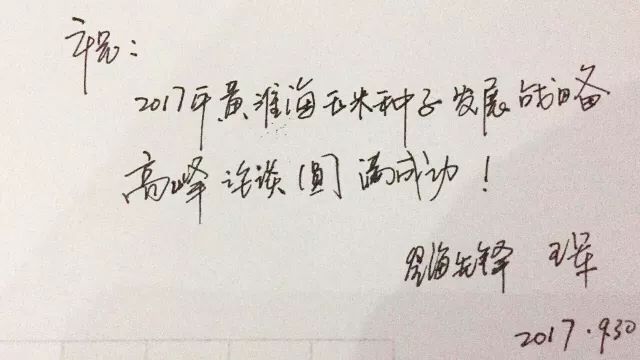 祝:
2017年黄淮海玉米种子发展战略
高峰论谈圆满成功!
登海先锋 王军
2017.9.30